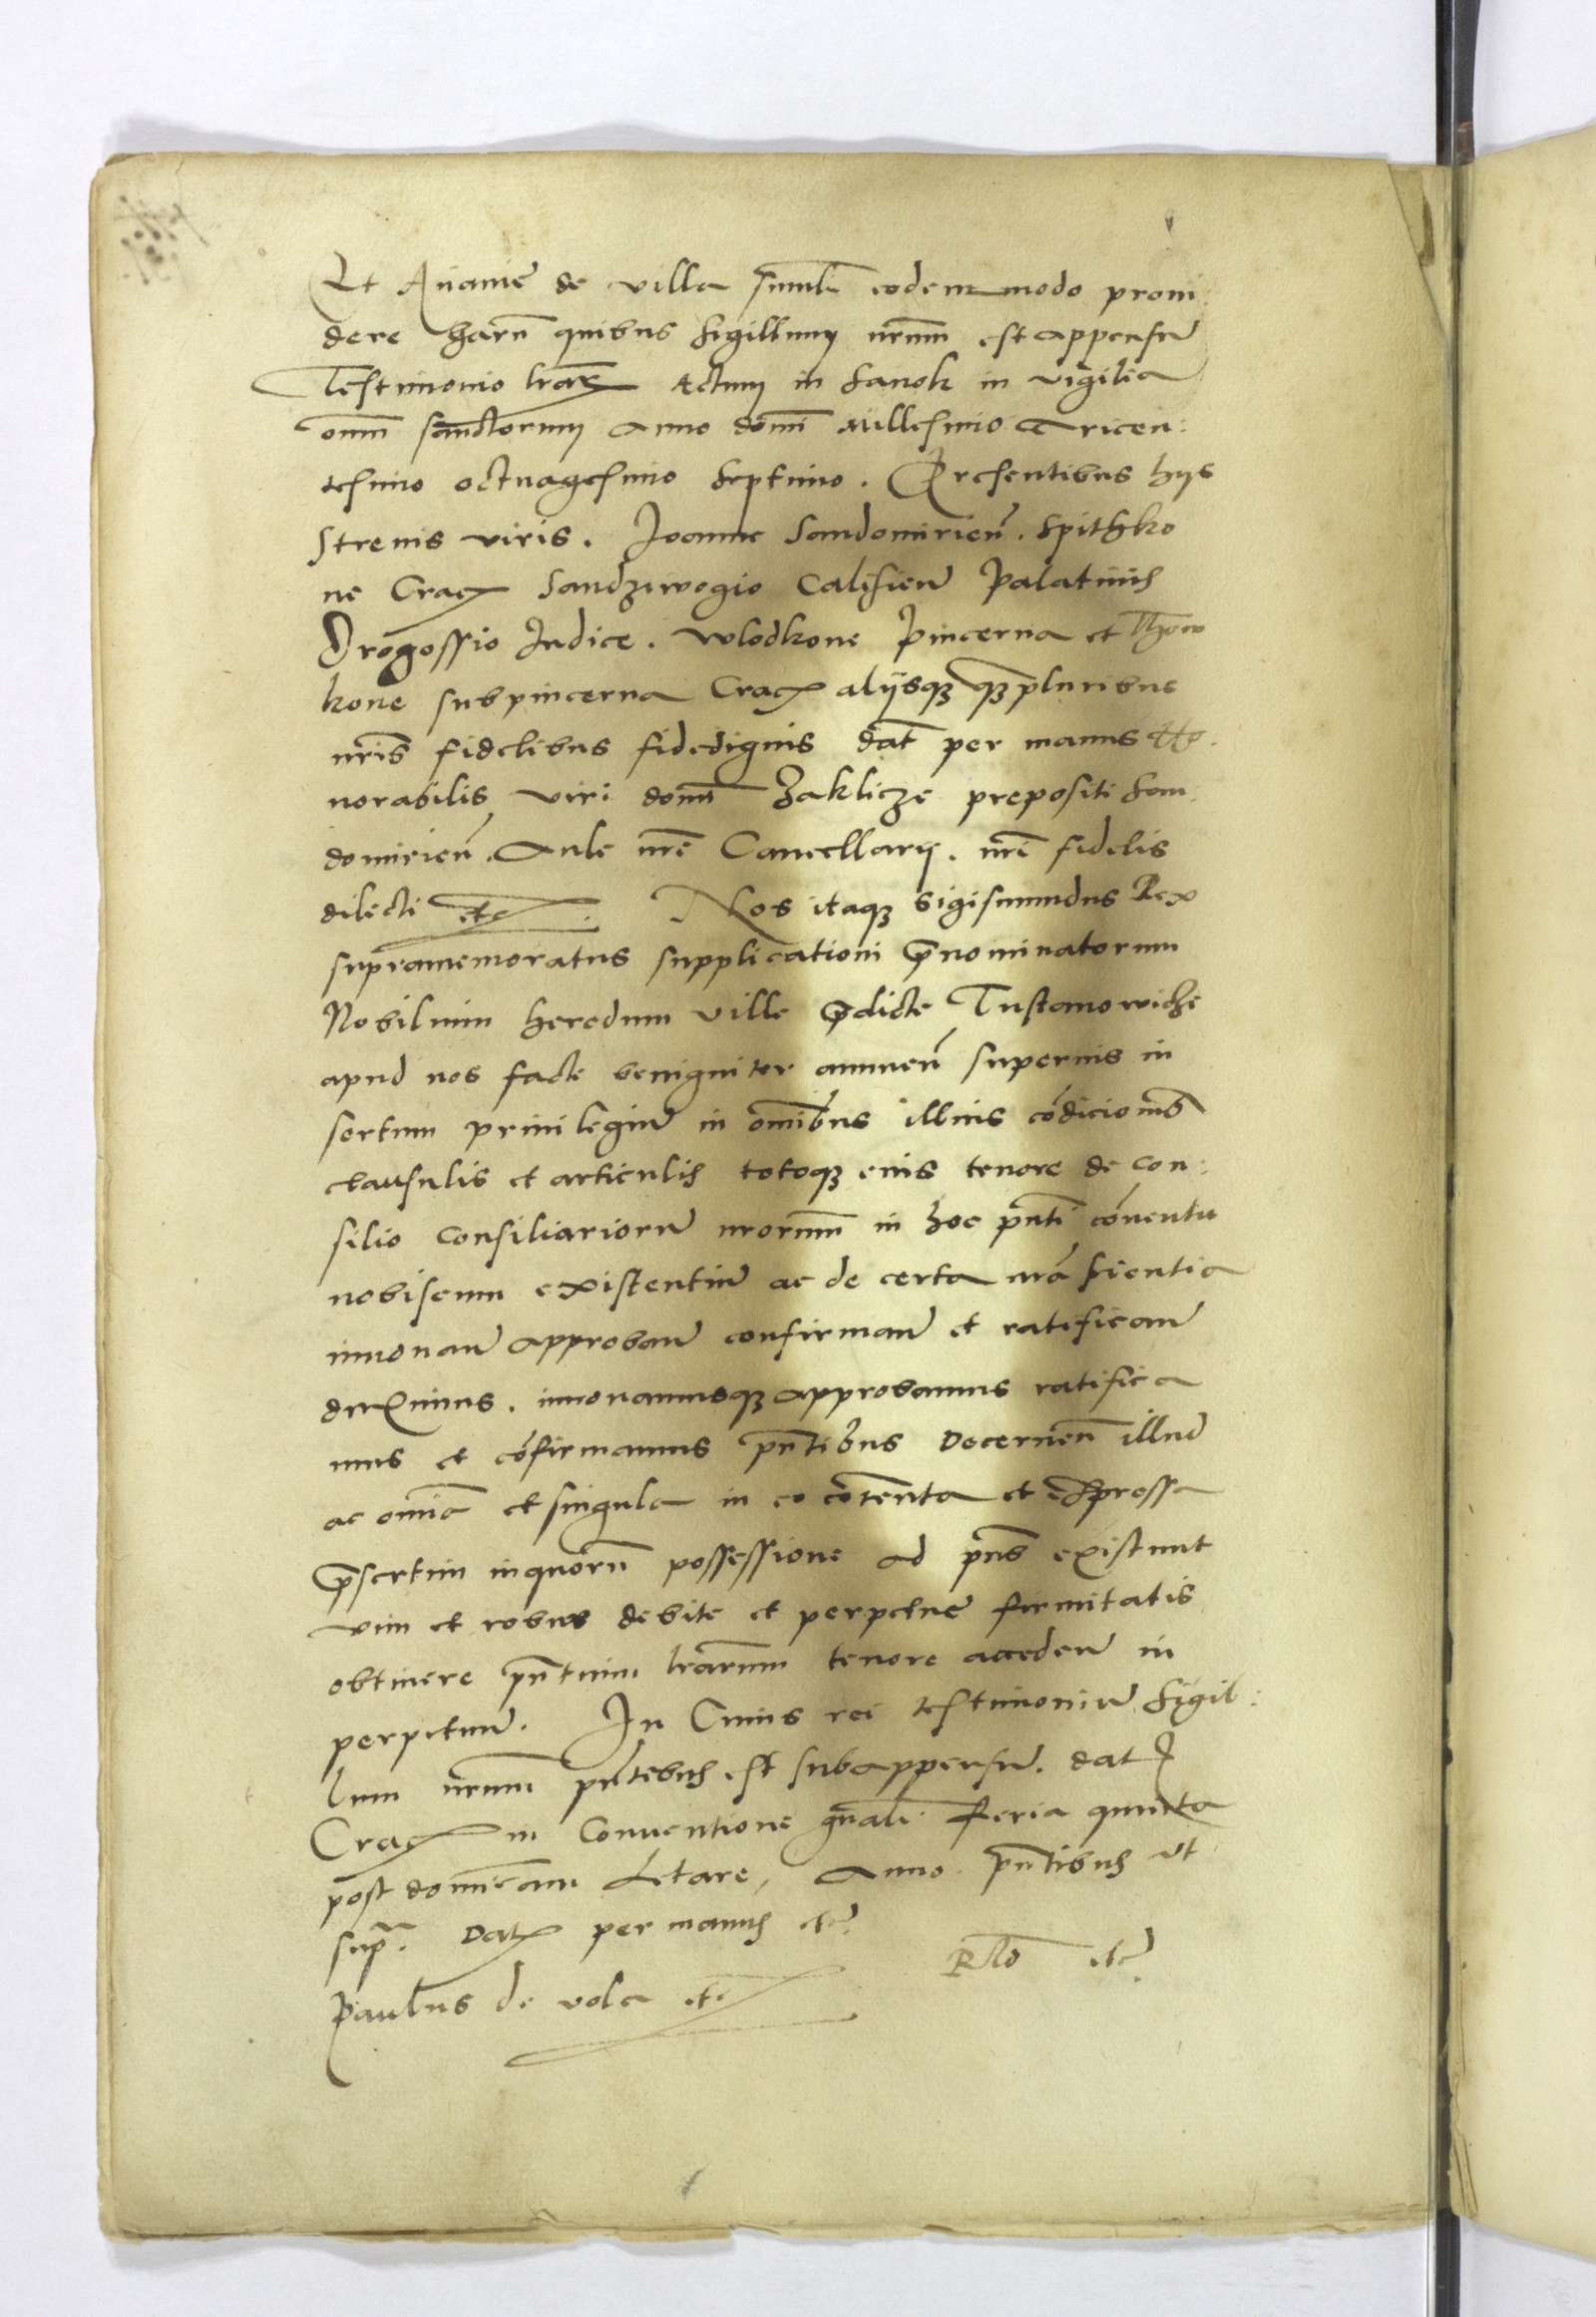 Et Ananie de villa simili eodem modo provi
dere harū quibus sigillum nrum est appensū
Testimonio lrarum Actum in Sanok in vigilia
omnī sanctorum anno domī Millesimo Tricen:
tesimo octuagesimo septimo. Presentibus hys
strenuis viris. Joanne Sandomirieñ. Spithko
ne Crac Sandziwogio Calisieñ Palatinis
Drogossio Judice. Wlodkone Pincerna et
kone subpincerna Crac alijsq; q; pluribus
nr̄is fidelibus fidedignis dat̄ per manus Ho.
norabilis viri domī Zaklicze prepositi San
domirieñ. Aule nr̄e Cancellarij. nr̄i fidelis
dilecti etc. Nos itaq; Sigismundus Rex
supramemoratus supplicationi p̄nominatorum
Nobilium heredum ville p̄dicte Tustanowicze
apud nos facte benigniter annueñ superius in
sertum privilegiū in om̄ibus illius cōdicionib
clausulis et articulis totoq; eius tenore de con:
silio consiliariorū nrorum in hoc pn̄ti cōventu
nobiscum existentiū ac de certa nr̄a scientia
innovanḋ approbanḋ confirmanḋ et ratificanḋ
duximus. innovamusq; approbamus ratifica
mus et cōfirmamus pn̄tibus Decerneñ illud
ac omīa et singula in eo cōtenta et expressa
p̄sertim in quorū possessione ad pn̄s existunt
vim et robur debite et perpetue firmitatis
obtinere pn̄tium lrarum tenore in
perpetuū. In Cuius rei testimoniū Sigil:
lum nrum pn̄tibus est subappensū. dat
Crac in Conventione gn̄ali feria quinta
post domīcam Letare, Anno pn̄tibus ut
supra. Dat per manus etc
Rndi etc
Paulus de vola etc